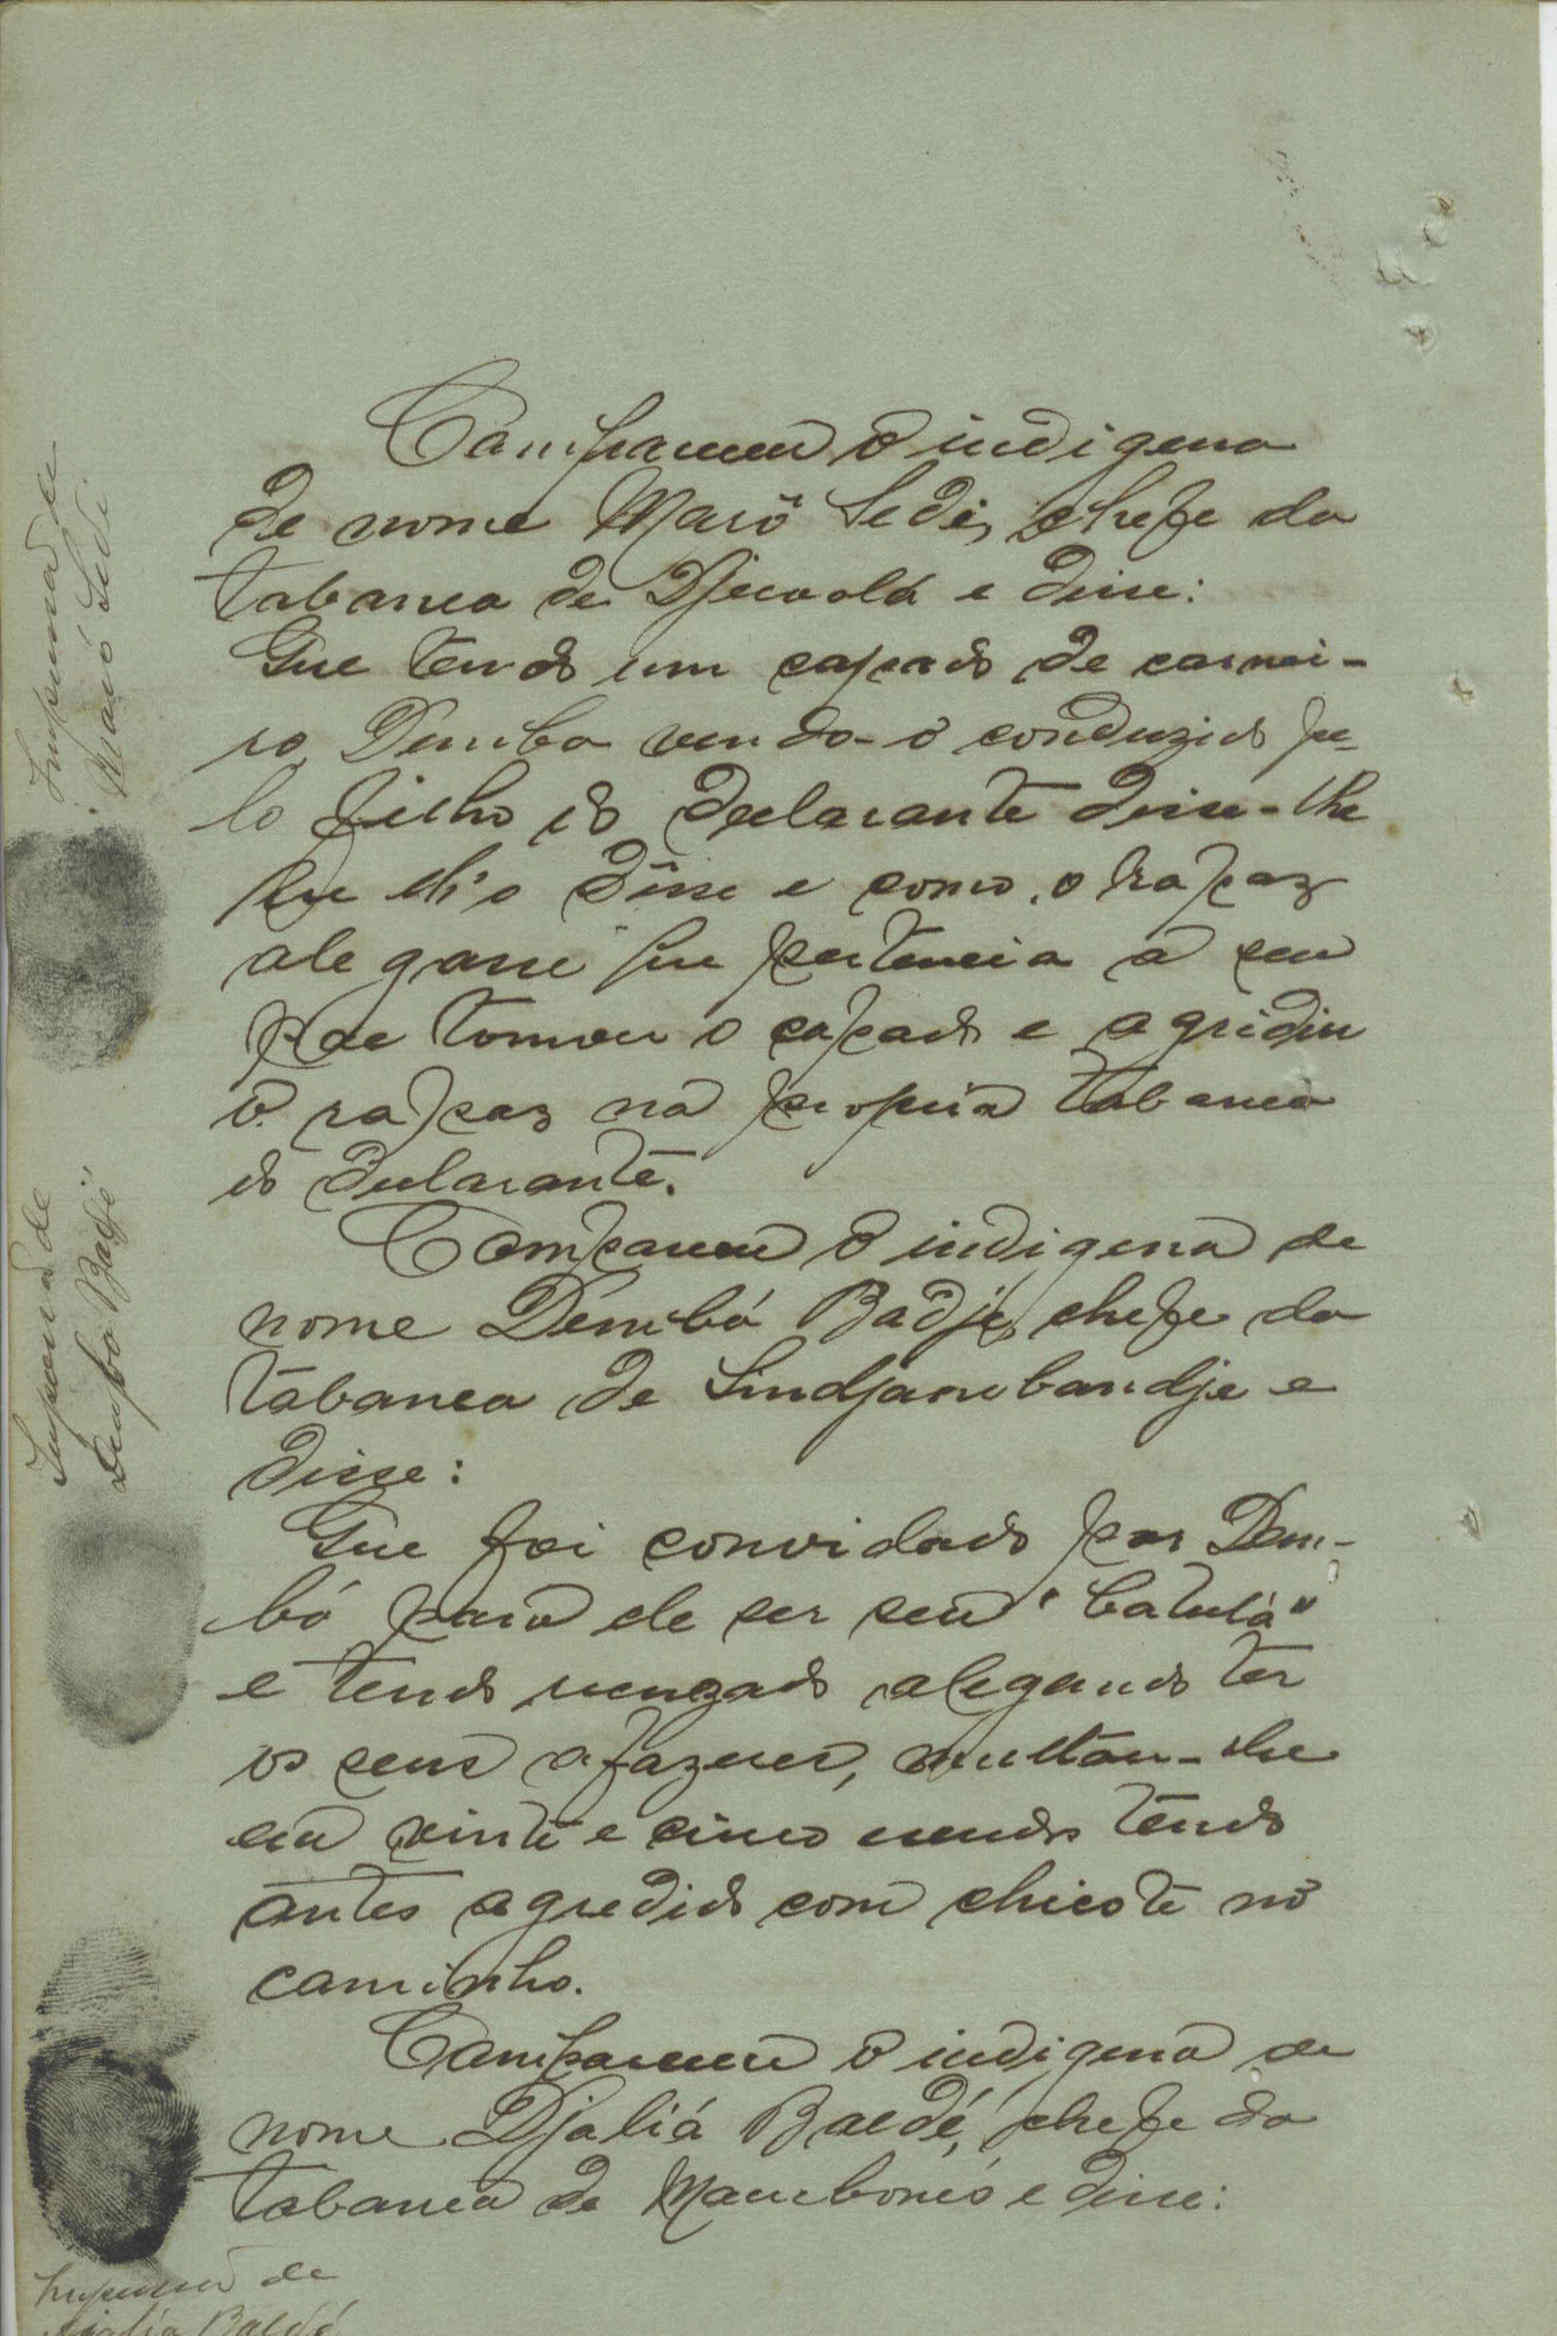 Compareceu o indigena
de nome Maró Sedi, chefe da
tabanca de e disse:
Que tendo um capado de carnei-
ro, Demba vendo-o conduzido pe-
lo filho do declarante disse-lhe
que lh'o désse e como o rapaz
alegasse que pertencia a seu
pae tomou o capado e agridiu
o rapaz na propria tabanca
do declarante.
Compareceu o indigena de
nome Dembó Badje, chefe da
tabanca de Sindjambandje e
disse:
Que foi convidado por Dem-
bó para ele ser seu "batulá"
e tendo negado alegando ter
os seus afazeres, multou-lhe
em vinte e cinco tendo
antes agredido com chicote no
caminho.
Compareceu o indigena de
nome Djaliá Baldé, chefe da
tabanca de Mamboncó e disse:
Impressão de
Maró Sedi
Impressão de
Dembo Badjé
Impressão de
Djaliá Baldé